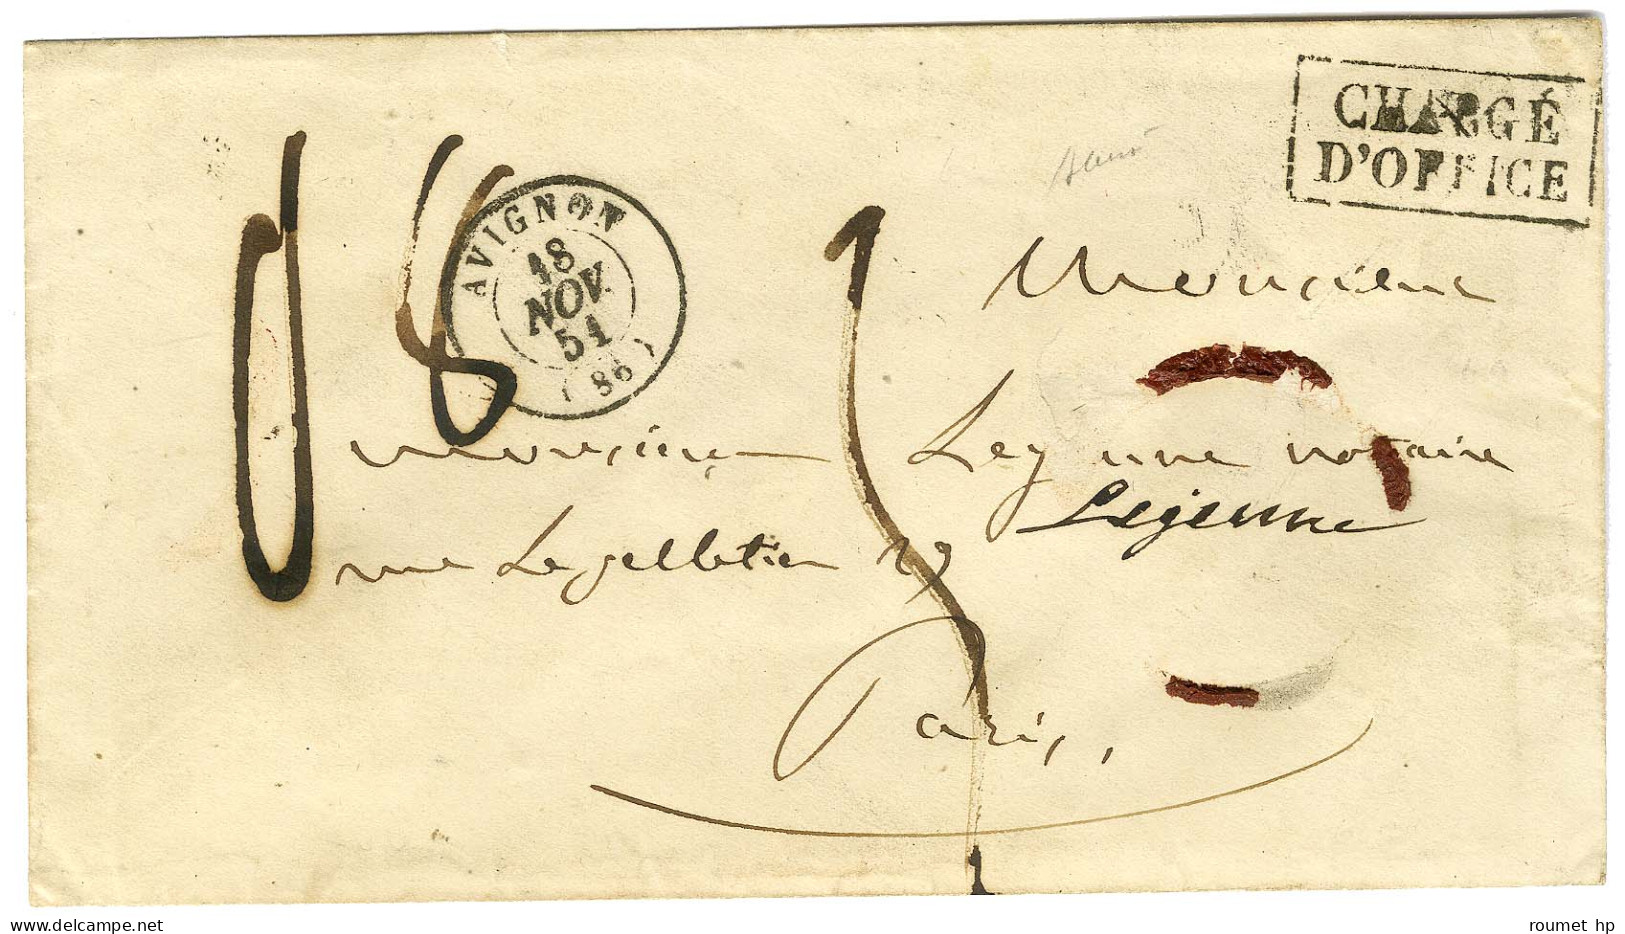 CHARGÉ
D'OFFICE
AVIGNON
18
NOV.
51
(86)
Monsieur
Monsieur Lejeune notaire
Lejeune
rue Lepelletier 29
Paris
www.delcampe.net
roumet hp